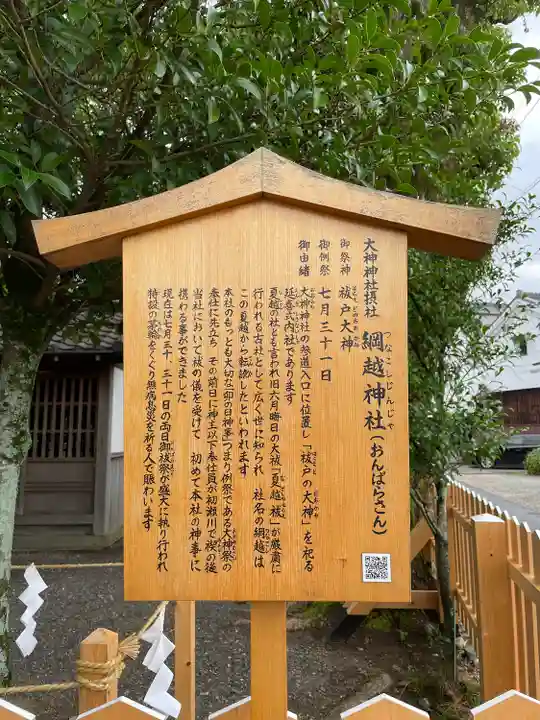 大神神社摂社 綱越神社(おんぱらさん)
つなこしじんじゃ
御祭神 祓戸大神
はらえどのおおかみ
御例祭 七月三十一日
御由緒 大神神社の参道入口に位置し「祓戸の大神」を祀る
延喜式内社であります
夏越の社とも言われ旧六月晦日の大祓「夏越祓」が厳粛に
行われる古社として広く世に知られ 社名の綱越は
この夏越から転訛したといわれます
本社のもっとも大切な「卯の日神事」つまり例祭である大神祭の
奉仕に先立ち その前日に神主以下奉仕員が初瀬川で禊の後
当社において祓の儀を受けて 初めて本社の神事に
携わる事ができました
現在は七月三十、三十一日の両日御祓祭が盛大に執り行われ
特設の茅輪をくぐり無病息災を祈る人で賑わいます